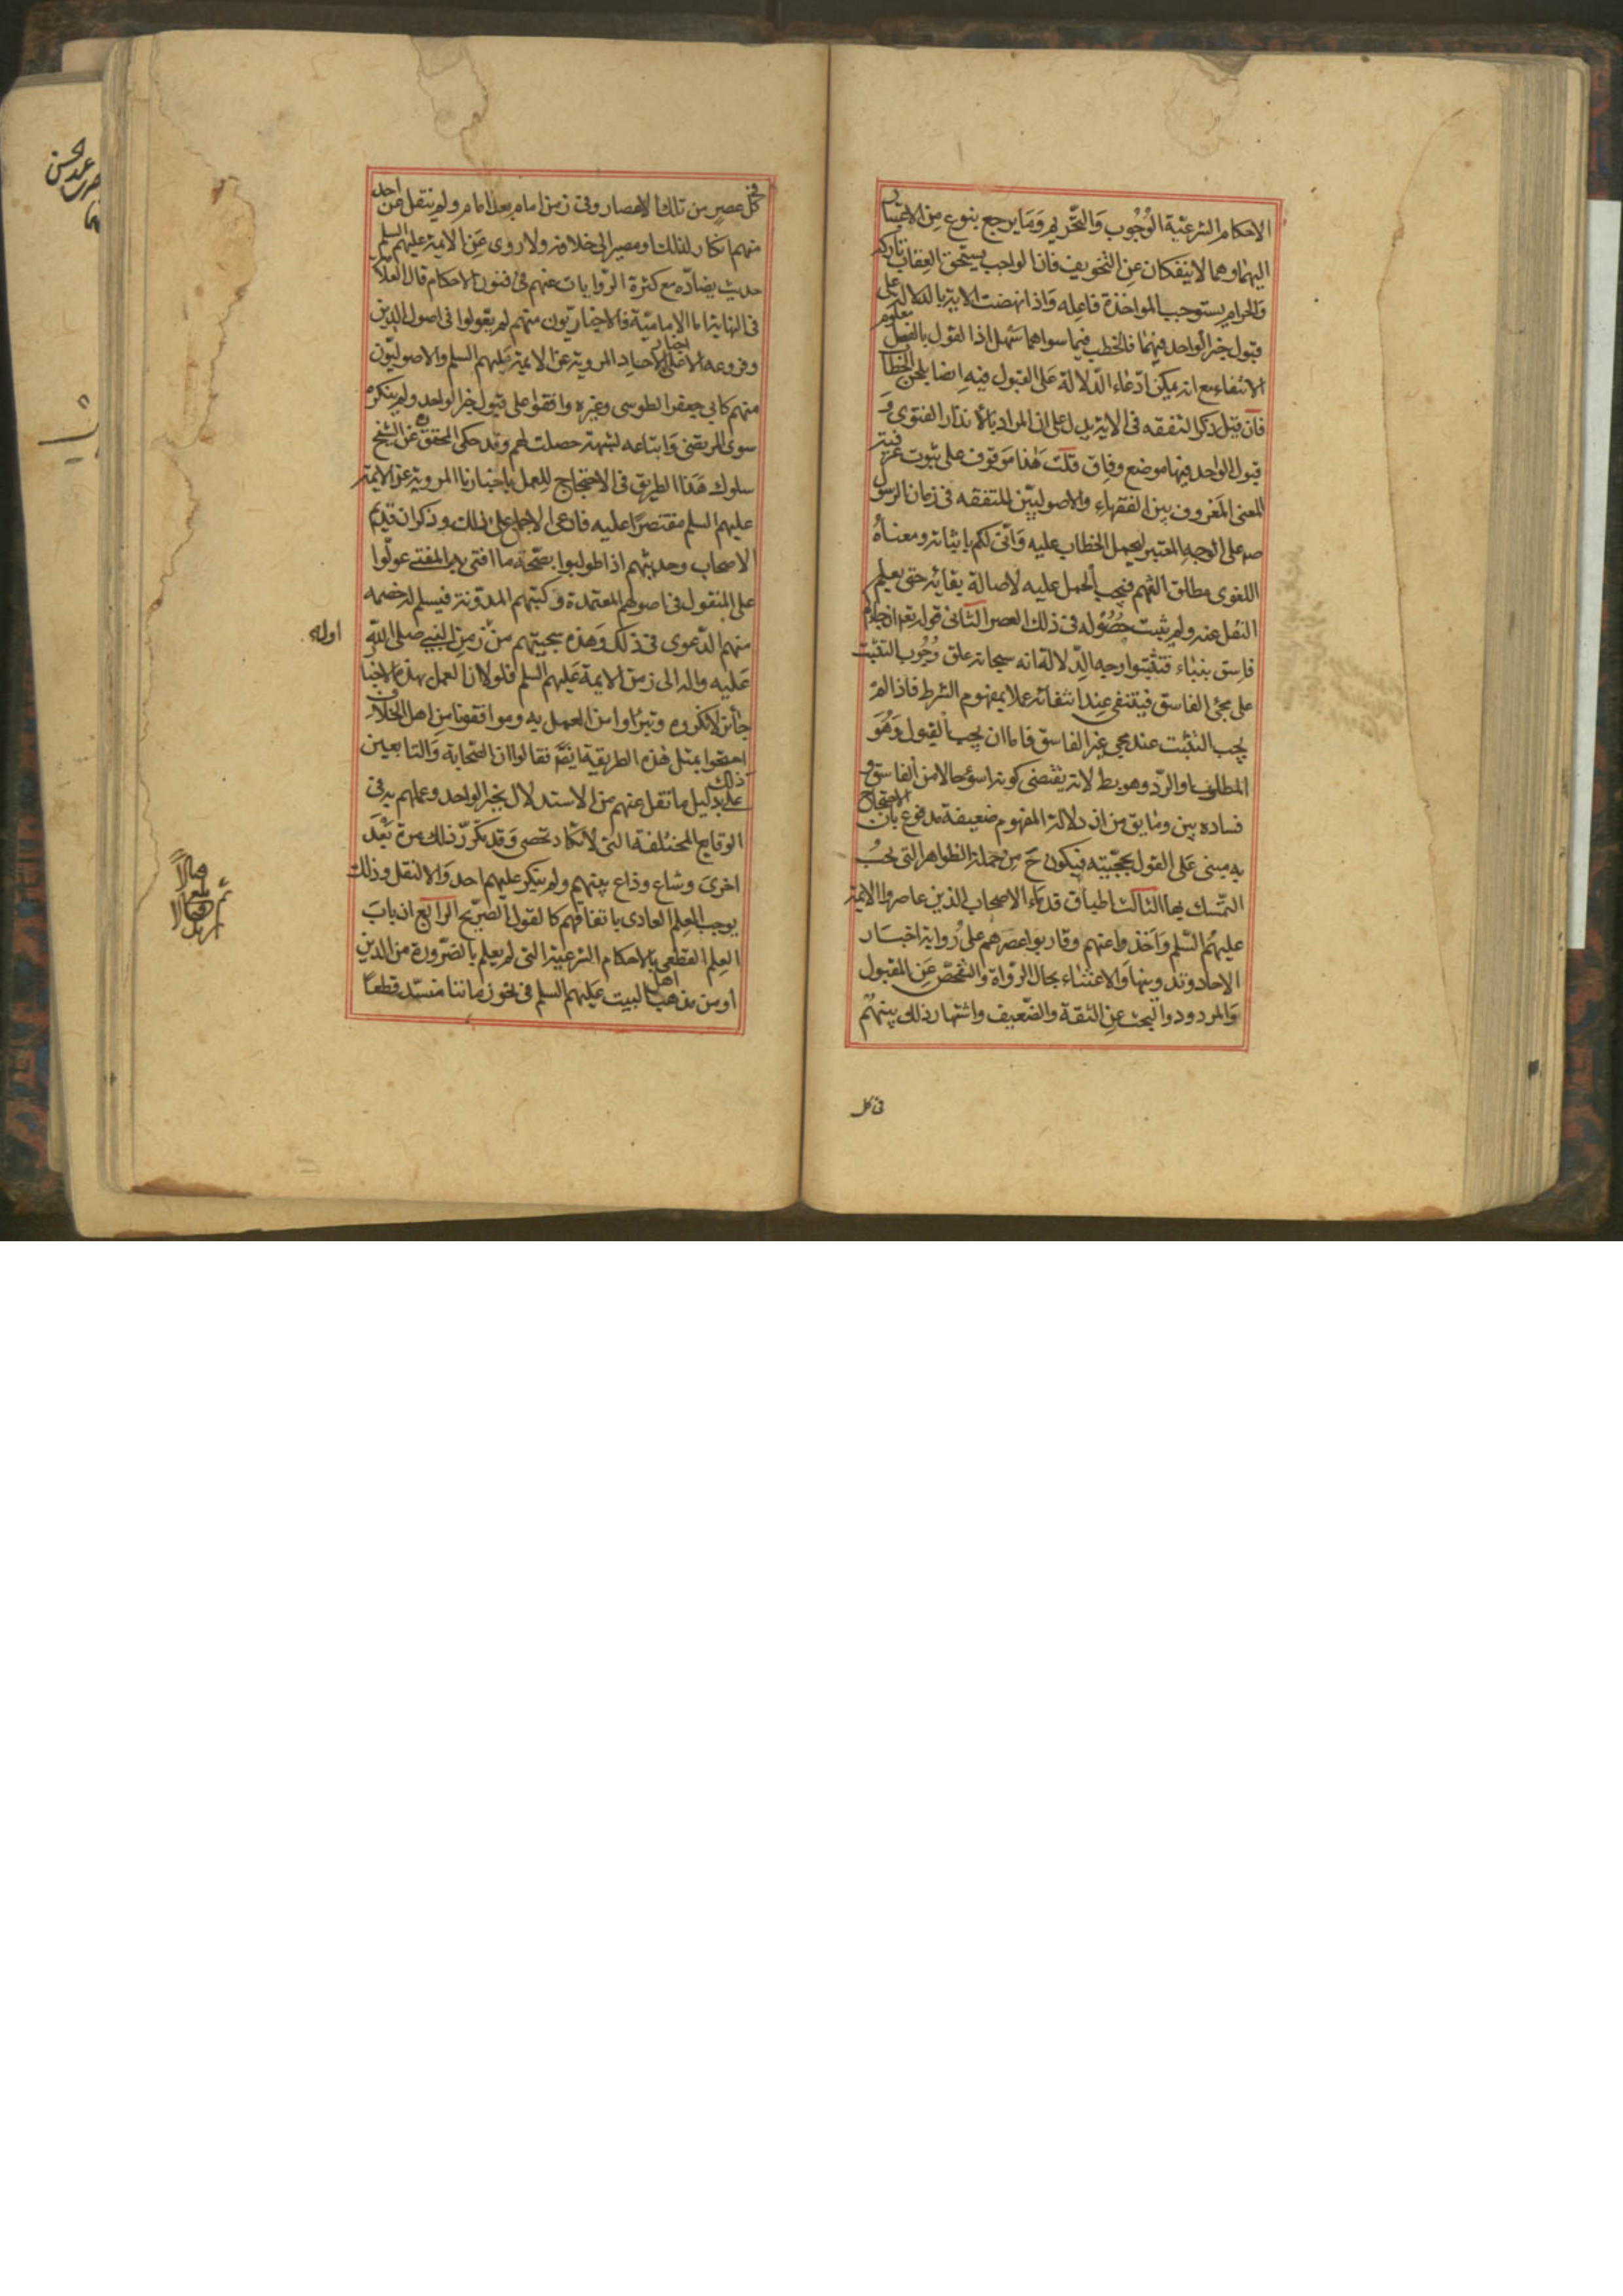 الاحكام الشرعية الوجوب والتحريم وما يرجع بنوع من الاعتبار
اليهما وهما لا ينفكان عن التخويف فان الواجب يستحق العقاب تاركه
والحرام يستوجب المواخذة فاعله واذا نهضت الاية بالدلالة على
قبول خبر الواحد فيهما فالخطب فيما سواهما سهل اذ القول بالفصل معلوم
الانتفاء مع انه يمكن ادعاء الدلالة على القبول فيه ايضا بلحن الخطاب
فان قيل ذكر التفقه في الاية يدل على ان المراد بالانذار الفتوى و
قبول الواحد فيها موضع وفاق قلت هذا موقوف على ثبوت عرفية
المعنى المعروف بين الفقهاء والاصوليين للتفقه في زمان الرسول
صه على الوجه المعتبر ليحمل الخطاب عليه واني لكم باثباته ومعناه
اللغوى مطلق التفهم فيجب الحمل عليه لاصالة بقائه حتى يعلم
النقل عنه ولم يثبت حصوله في ذلك العصر الثانى قوله تعم ان جاءكم
فاسق بنباء فتثبتوا وجه الدلالة انه سبحانه علق وجوب التثبت
على مجئ الفاسق فينتفى عند انتفائه عملا بمفهوم الشرط فاذا لم
يجب التثبت عند مجى غير الفاسق فاما ان يجب القبول وهو
المطلوب او الرد وهو بط لانه يقتضى كونه اسوء حالا من الفاسق و
فساده بين وما يق من ان دلالة المفهوم ضعيفة مدفوع بان الاحتجاج
به مبنى على القول بحجيته فيكون ح من جملة الظواهر التى يجب
التمسك بها الثالث اطباق قدماء الاصحاب الذين عاصروا الايمة
عليهم السلم واخذوا عنهم وقاربوا عصرهم على رواية اخبار
الاحاد وتدوينها والاعتناء بحال الرواة والتفحص عن المقبول
والمردود والبحث عن الثقة والضعيف واشتهار ذلك بينهم
في كل
في كل عصر من تلك الاعصار وفى زمن امام بعد امام ولم ينقل عن احد
منهم انكار لذلك او مصير الى خلافه ولا روى عن الايمة عليهم السلم
حديث يضاده مع كثرة الروايات عنهم في فنون الاحكام قال العلامة
في النهاية اما الامامية فالاخباريون منهم لم يعولوا في اصول الدين
وفروعه الا على اخبار الاحاد المروية عن الايمة عليهم السلم والاصوليون
منهم كابي جعفر الطوسى وغيره وافقوا على قبول خبر الواحد ولم ينكره
سوى المرتضى واتباعه لشبهة حصلت لهم وقد حكى المحقق ره عن الشيخ
سلوك هذا الطريق في الاحتجاج للعمل باخبارنا المروية عن الايمة
عليهم السلم مقتصرا عليه فادعى الاجماع على ذلك وذكر ان قديم
الاصحاب وحديثهم اذا طولبوا بصحة ما افتى به المفتى عولوا
على المنقول في اصولهم المعتمدة وكتبهم المدونة فيسلم له خصمه
منهم الدعوى في ذلك وهذه سجيتهم من زمن النبي صلى الله
عليه واله الى زمن الايمة عليهم السلم فلولا ان العمل بهذه الاخبار
جائز لانكروه وتبرؤا من العمل به وموافقونا من اهل الخلاف
احتجوا بمثل هذه الطريقة ايضا فقالوا ان الصحابة والتابعين
على ذلك بدليل ما نقل عنهم من الاستدلال بخبر الواحد وعملهم به في
الوقايع المختلفة التى لا تكاد تحصى وقد تكرر ذلك مرة بعد
اخرى وشاع وذاع بينهم ولم ينكر عليهم احد والا لنقل وذلك
يوجب العلم العادى باتفاقهم كالقول الصريح الرابع ان باب
العلم القطعى بالاحكام الشرعية التى لم يعلم بالضرورة من الدين
او من مذهب اهل البيت عليهم السلم في نحو زماننا منسد قطعا